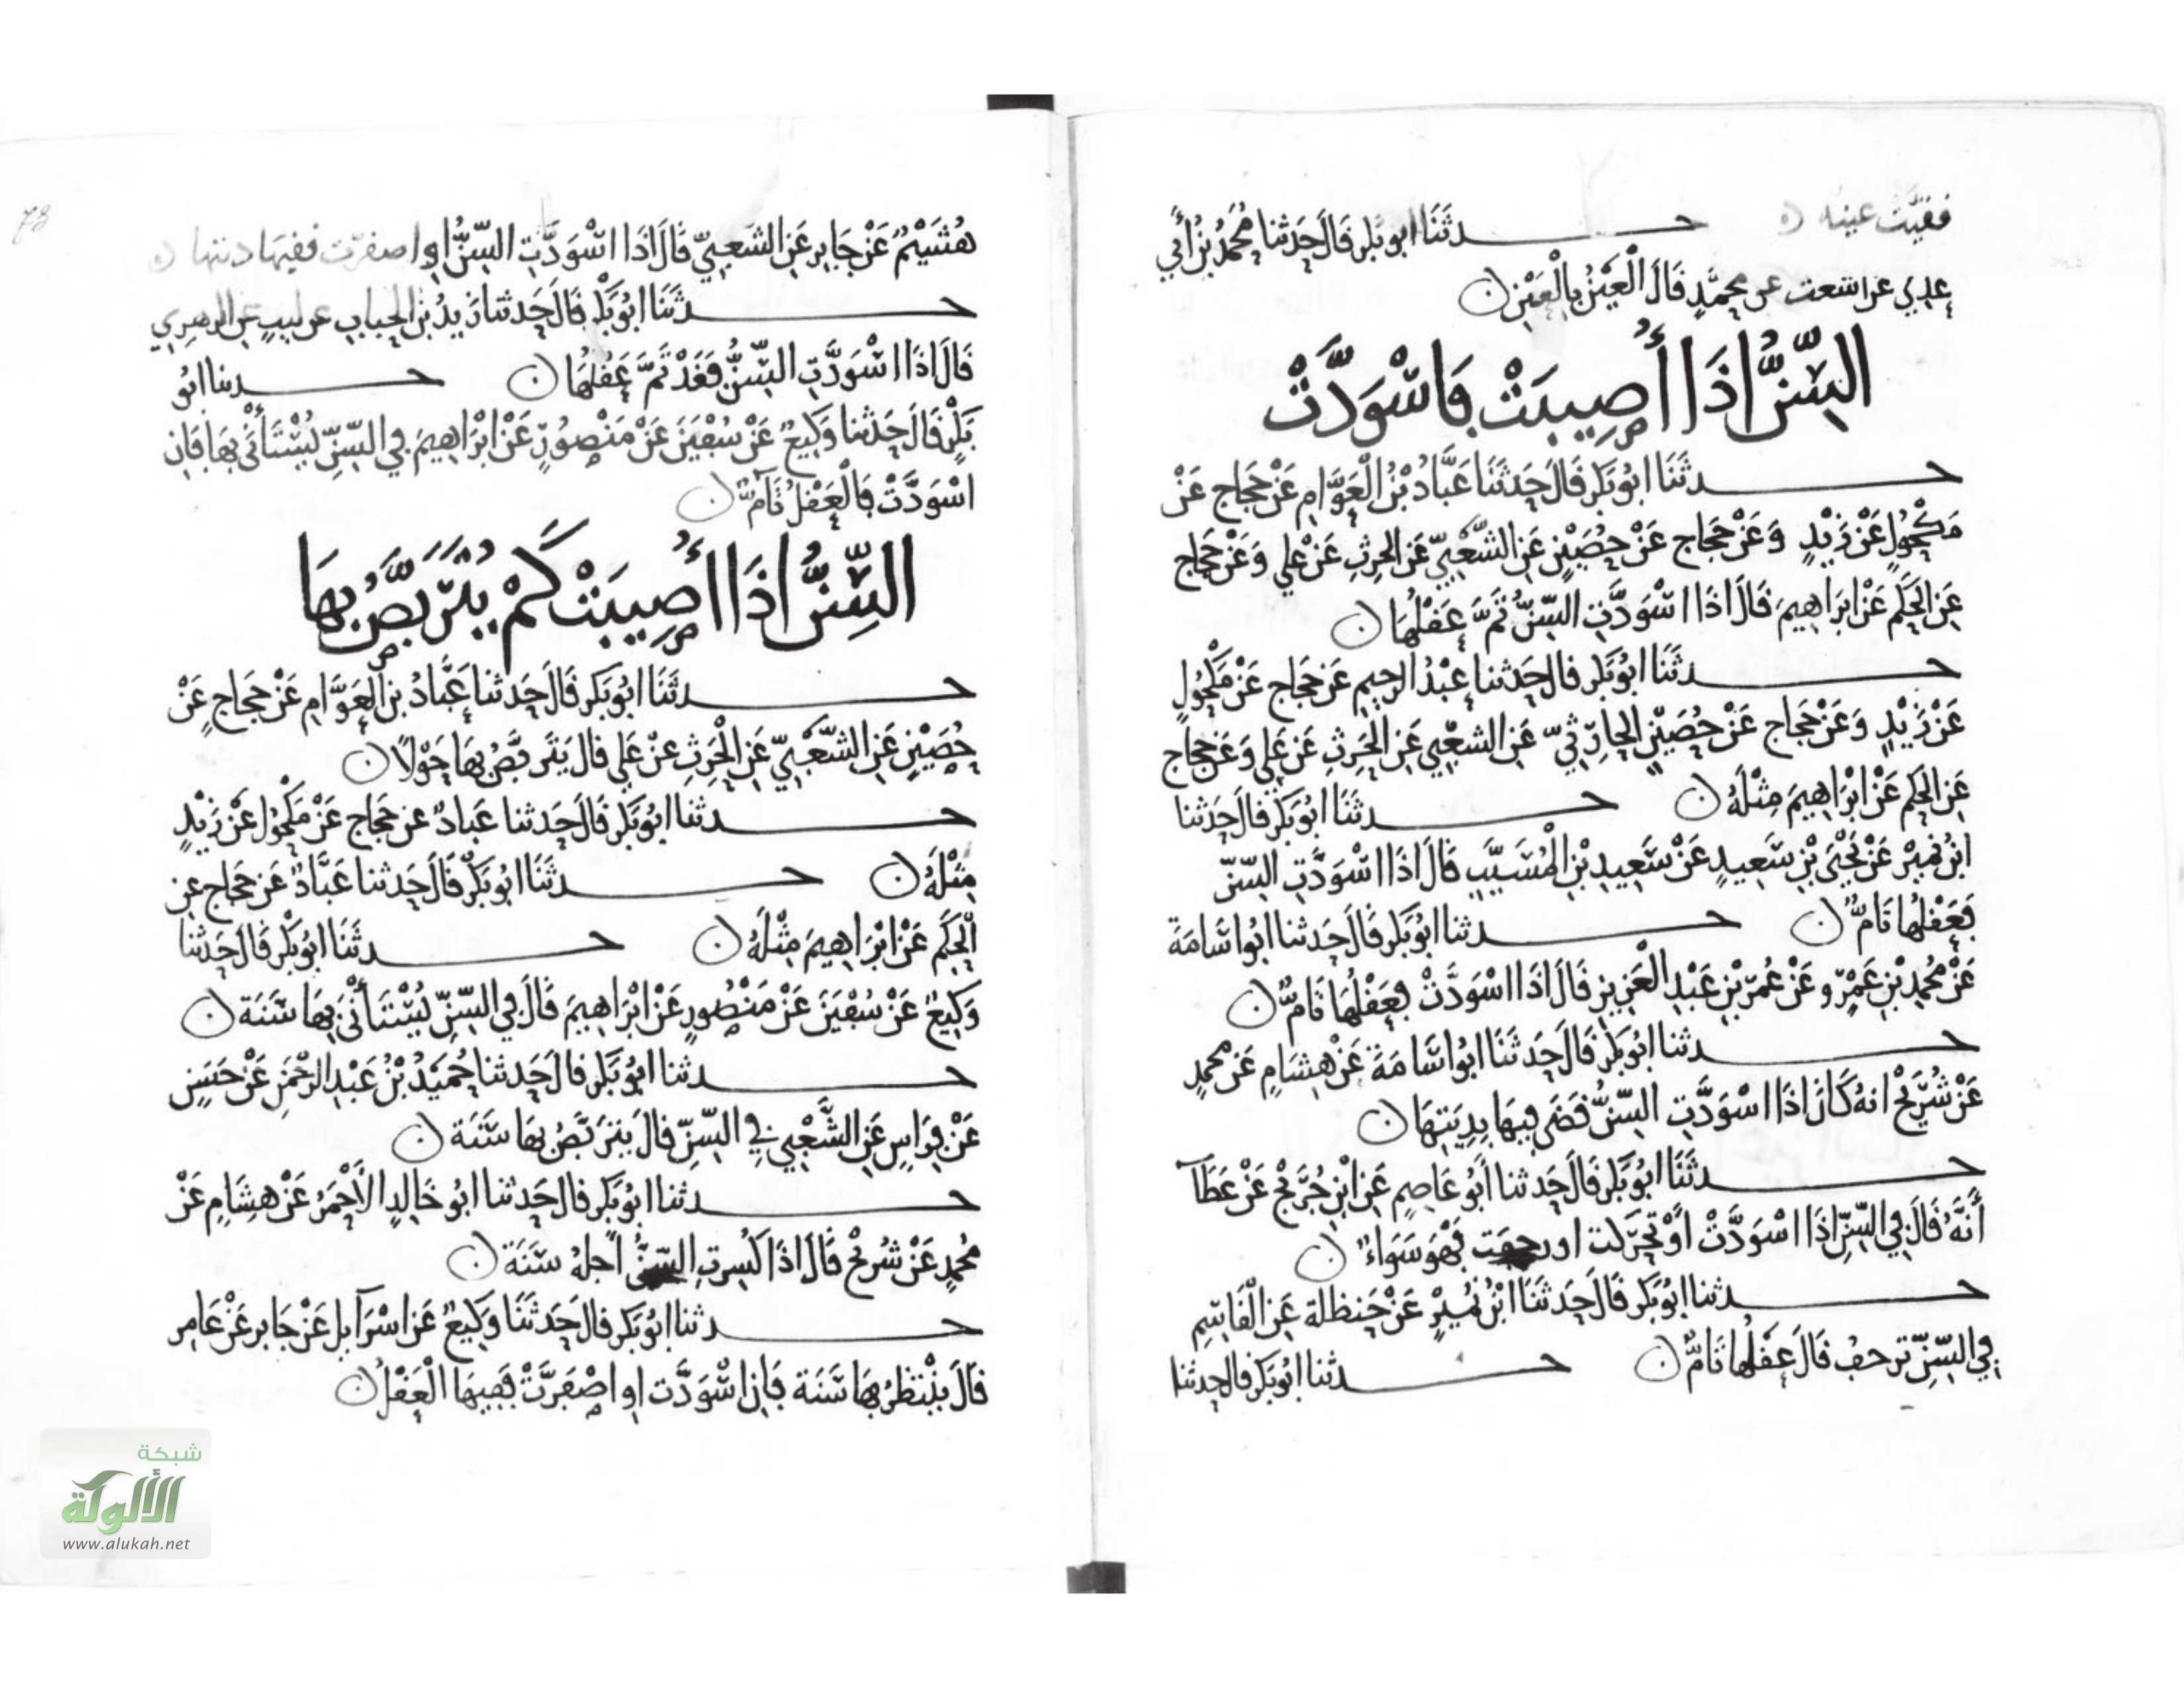 ففيت عينه حدثنا ابو بكر قال حدثنا محمد بن أبي
عدي عن اشعت عن محمد قال العين بالعين
السن اذا أصيبت فاسودت
حدثنا ابو بكر قال حدثنا عباد بن العوام عن حجاج عن
مكحول عن زيد وعن حجاج عن حصين عن الشعبي عن الحرث عن علي وعن حجاج
عن الحكم عن ابراهيم قال اذا اسودت السن ثم عقلها
حدثنا ابو بكر قال حدثنا عبد الرحيم عن حجاج عن مكحول
عن زيد وعن حجاج عن حصين الحارثي عن الشعبي عن الحرث عن علي وعن حجاج
عن الحكم عن ابراهيم مثله حدثنا ابو بكر قال حدثنا
ابن نمير عن يحيى بن سعيد عن سعيد بن المسيب قال اذا اسودت السن
فعقلها تام حدثنا ابو بكر قال حدثنا ابو اسامة
عن محمد بن عمرو عن عمر بن عبد العزيز قال اذا اسودت فعقلها تام
حدثنا ابو بكر قال حدثنا ابو اسامة عن هشام عن محمد
عن شريح انه كان اذا اسودت السن قضى فيها بديتها
حدثنا ابو بكر قال حدثنا أبو عاصم عن ابن جريج عن عطآ
أنه قال في السن اذا اسودت او تحركت او رجفت فهو سواء
حدثنا ابو بكر قال حدثنا ابن نمير عن حنظلة عن القاسم
في السن ترجف قال عقلها تام حدثنا ابو بكر قال حدثنا
هشيم عن جابر عن الشعبي قال اذا اسودت السن او اصفرت ففيها ديتها
حدثنا ابو بكر قال حدثنا زيد بن الحباب عن الزهري
قال اذا اسودت السن فقد تم عقلها حدثنا ابو
بكر قال حدثنا وكيع عن سفين عن منصور عن ابراهيم في السن يستأنى بها فان
اسودت فالعقل تام
السن اذا أصيبت كم يتربص بها
حدثنا ابو بكر قال حدثنا عباد بن العوام عن حجاج عن
حصين عن الشعبي عن الحرث عن علي قال يتربص بها حولا
حدثنا ابو بكر قال حدثنا عباد عن حجاج عن مكحول عن زيد
مثله حدثنا ابو بكر قال حدثنا عباد عن حجاج عن
الحكم عن ابراهيم مثله حدثنا ابو بكر قال حدثنا
وكيع عن سفين عن منصور عن ابراهيم قال في السن يستأنى بها سنة
حدثنا ابو بكر قال حدثنا حميد بن عبد الرحمن عن حسن
عن فراس عن الشعبي في السن قال يتربص بها سنة
حدثنا ابو بكر قال حدثنا ابو خالد الأحمر عن هشام عن
محمد عن شريح قال اذا كسرت السن اجله سنة
حدثنا ابو بكر قال حدثنا وكيع عن اسرآيل عن جابر عن عامر
قال ينتظر بها سنة فان اسودت او اصفرت ففيها العقل
شبكة
الألوكة
www.alukah.net